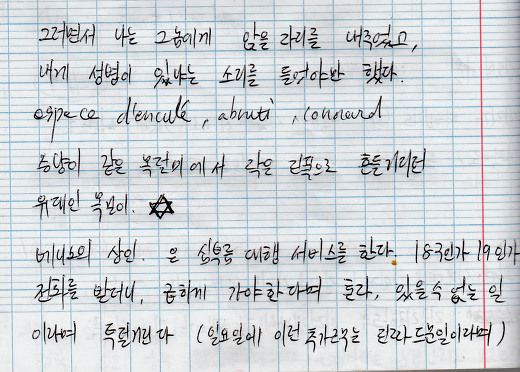 그러면서 나는 그놈에게 앉을 자리를 내주었고,
내게 성병이 있냐는 소리를 들어야만 했다.
espece d'enculé, abruti, connard
승냥이 같은 목덜미에서 작은 흔들거리던
유대인 목걸이. ✡
베니스의 상인. 은 심부름 대행 서비스를 한다. 18구인가 19인가
전화를 받더니, 급하게 가야한다며 혼자, 있을 수 없는 일
이라며 투덜거린다 (일요일에 이런 추가근무는 드문일이라며)